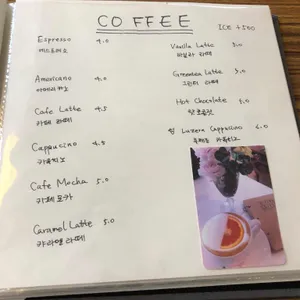 COFFEE
ICE +500
Espresso 4.0
에스프레소
Americano 4.0
아메리카노
Cafe Latte 4.5
카페 라떼
Cappucino 4.5
카푸치노
Cafe Mocha 5.0
카페모카
Caramel Latte 5.0
카라멜 라떼
Vanilla Latte 5.0
바닐라 라떼
Greentea Latte 5.0
그린티 라떼
Hot Chocolate 5.0
핫초콜릿
Luzern Cappuccino 6.0
루체른 카푸치노